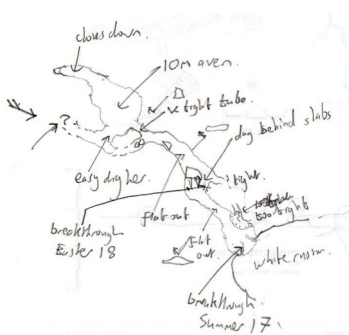 closes down.
10m aven.
v. tight tube.
?
dug behind slabs
easy dig here.
tight.
too tight
flat out
flat
out.
breakthrough
Easter 18
white room.
breakthrough.
Summer 17.